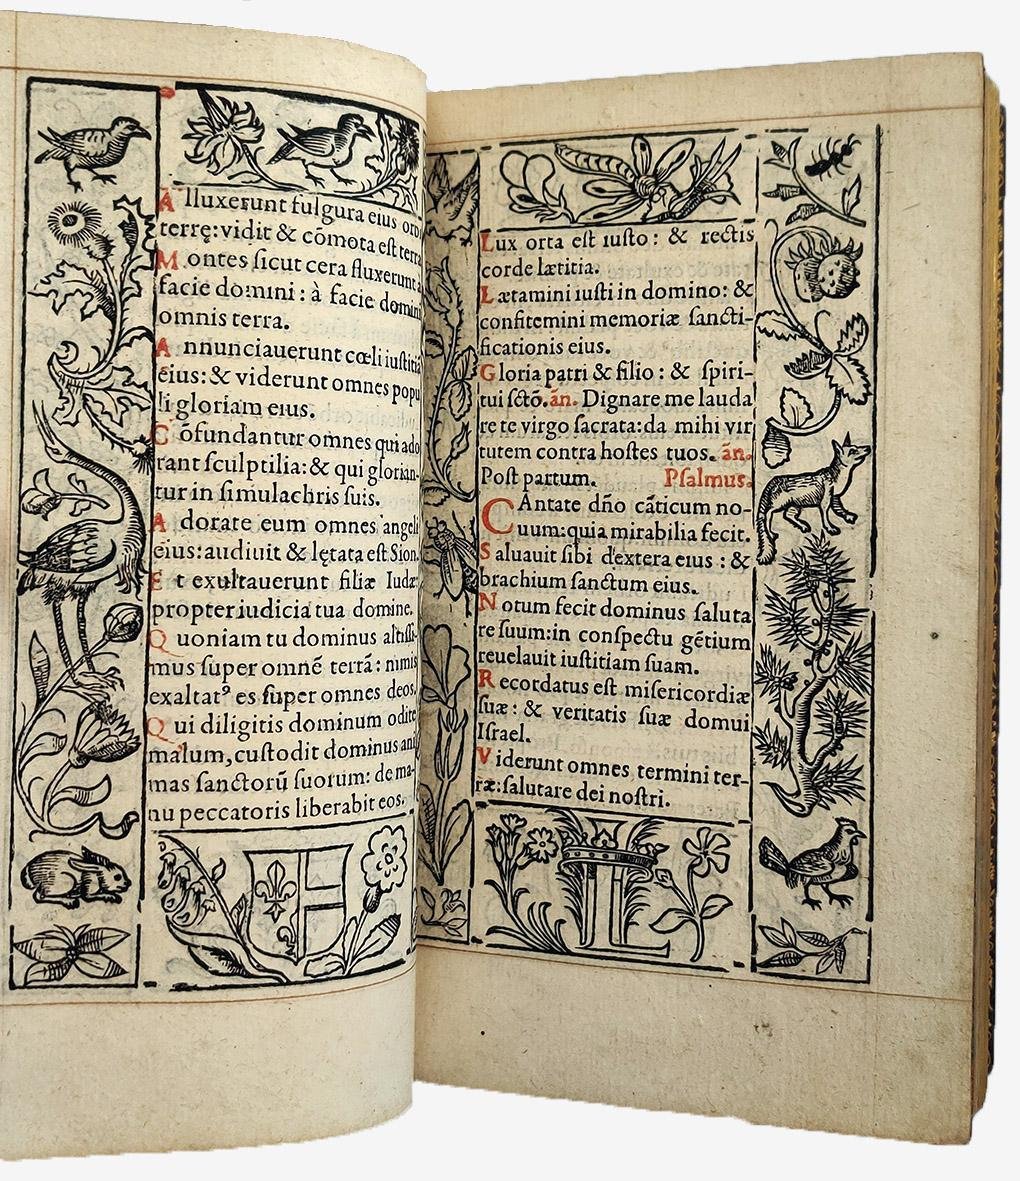 Alluxerunt fulgura eius orbi
terrę: vidit & cōmota est terra
Montes sicut cera fluxerunt à
facie domini: à facie domini
omnis terra.
Annunciauerunt cœli iustitiā
eius: & viderunt omnes popu
li gloriam eius.
Cōfundantur omnes qui ado
rant sculptilia: & qui glorian-
tur in simulachris suis.
Adorate eum omnes angeli
eius: audiuit & lętata est Sion.
Et exultauerunt filiæ Iudæ:
propter iudicia tua domine.
Quoniam tu dominus altissi-
mus super omnē terrā: nimis
exaltatꝰ es super omnes deos.
Qui diligitis dominum odite
malum, custodit dominus ani
mas sanctorū suorum: de ma-
nu peccatoris liberabit eos.
Lux orta est iusto: & rectis
corde lætitia.
Lætamini iusti in domino: &
confitemini memoriæ sancti-
ficationis eius.
Gloria patri & filio: & spiri-
tui sctō. ān. Dignare me lauda
re te virgo sacrata: da mihi vir
tutem contra hostes tuos. ān.
Post partum. Psalmus.
CAntate dño cāticum no-
uum: quia mirabilia fecit.
Saluauit sibi dextera eius: &
brachium sanctum eius.
Notum fecit dominus saluta
re suum: in conspectu gētium
reuelauit iustitiam suam.
Recordatus est misericordiæ
suæ: & veritatis suæ domui
Israel.
Viderunt omnes termini ter-
ræ: salutare dei nostri.